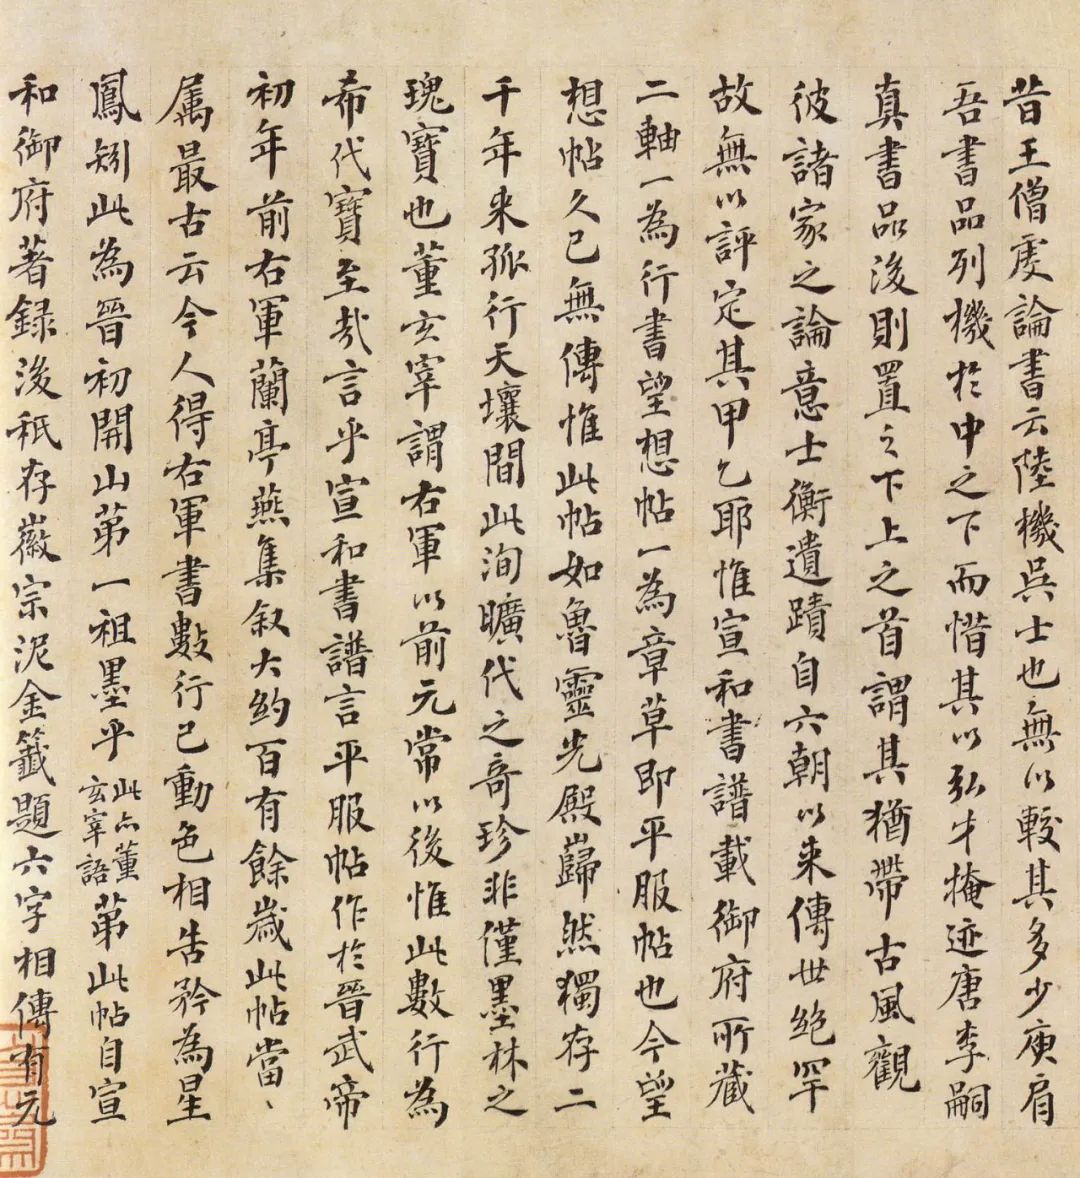 昔王僧虔論書云陸機吳士也無以較其多少庾肩
吾書品列機於中之下而惜其以弘才掩迹唐李嗣
真書品後則置之下上之首謂其猶帶古風觀
彼諸家之論意士衡遺蹟自六朝以来傳世絶罕
故無以評定其甲乙耶惟宣和書譜載御府所藏
二軸一為行書望想帖一為章草即平服帖也今望
想帖久已無傳惟此帖如魯靈光殿巋然獨存二
千年来孤行天壤間此洵曠代之奇珍非僅墨林之
瑰寶也董玄宰謂右軍以前元常以後惟此數行為
希代寶至哉言乎宣和書譜言平服帖作於晉武帝
初年前右軍蘭亭燕集叙大約百有餘歲此帖當、
属最古云今人得右軍書數行已動色相告矜為星
鳳矧此為晉初開山第一祖墨乎此亦董玄宰語第此帖自宣
和御府著録後祇存徽宗泥金籤題六字相傳有元